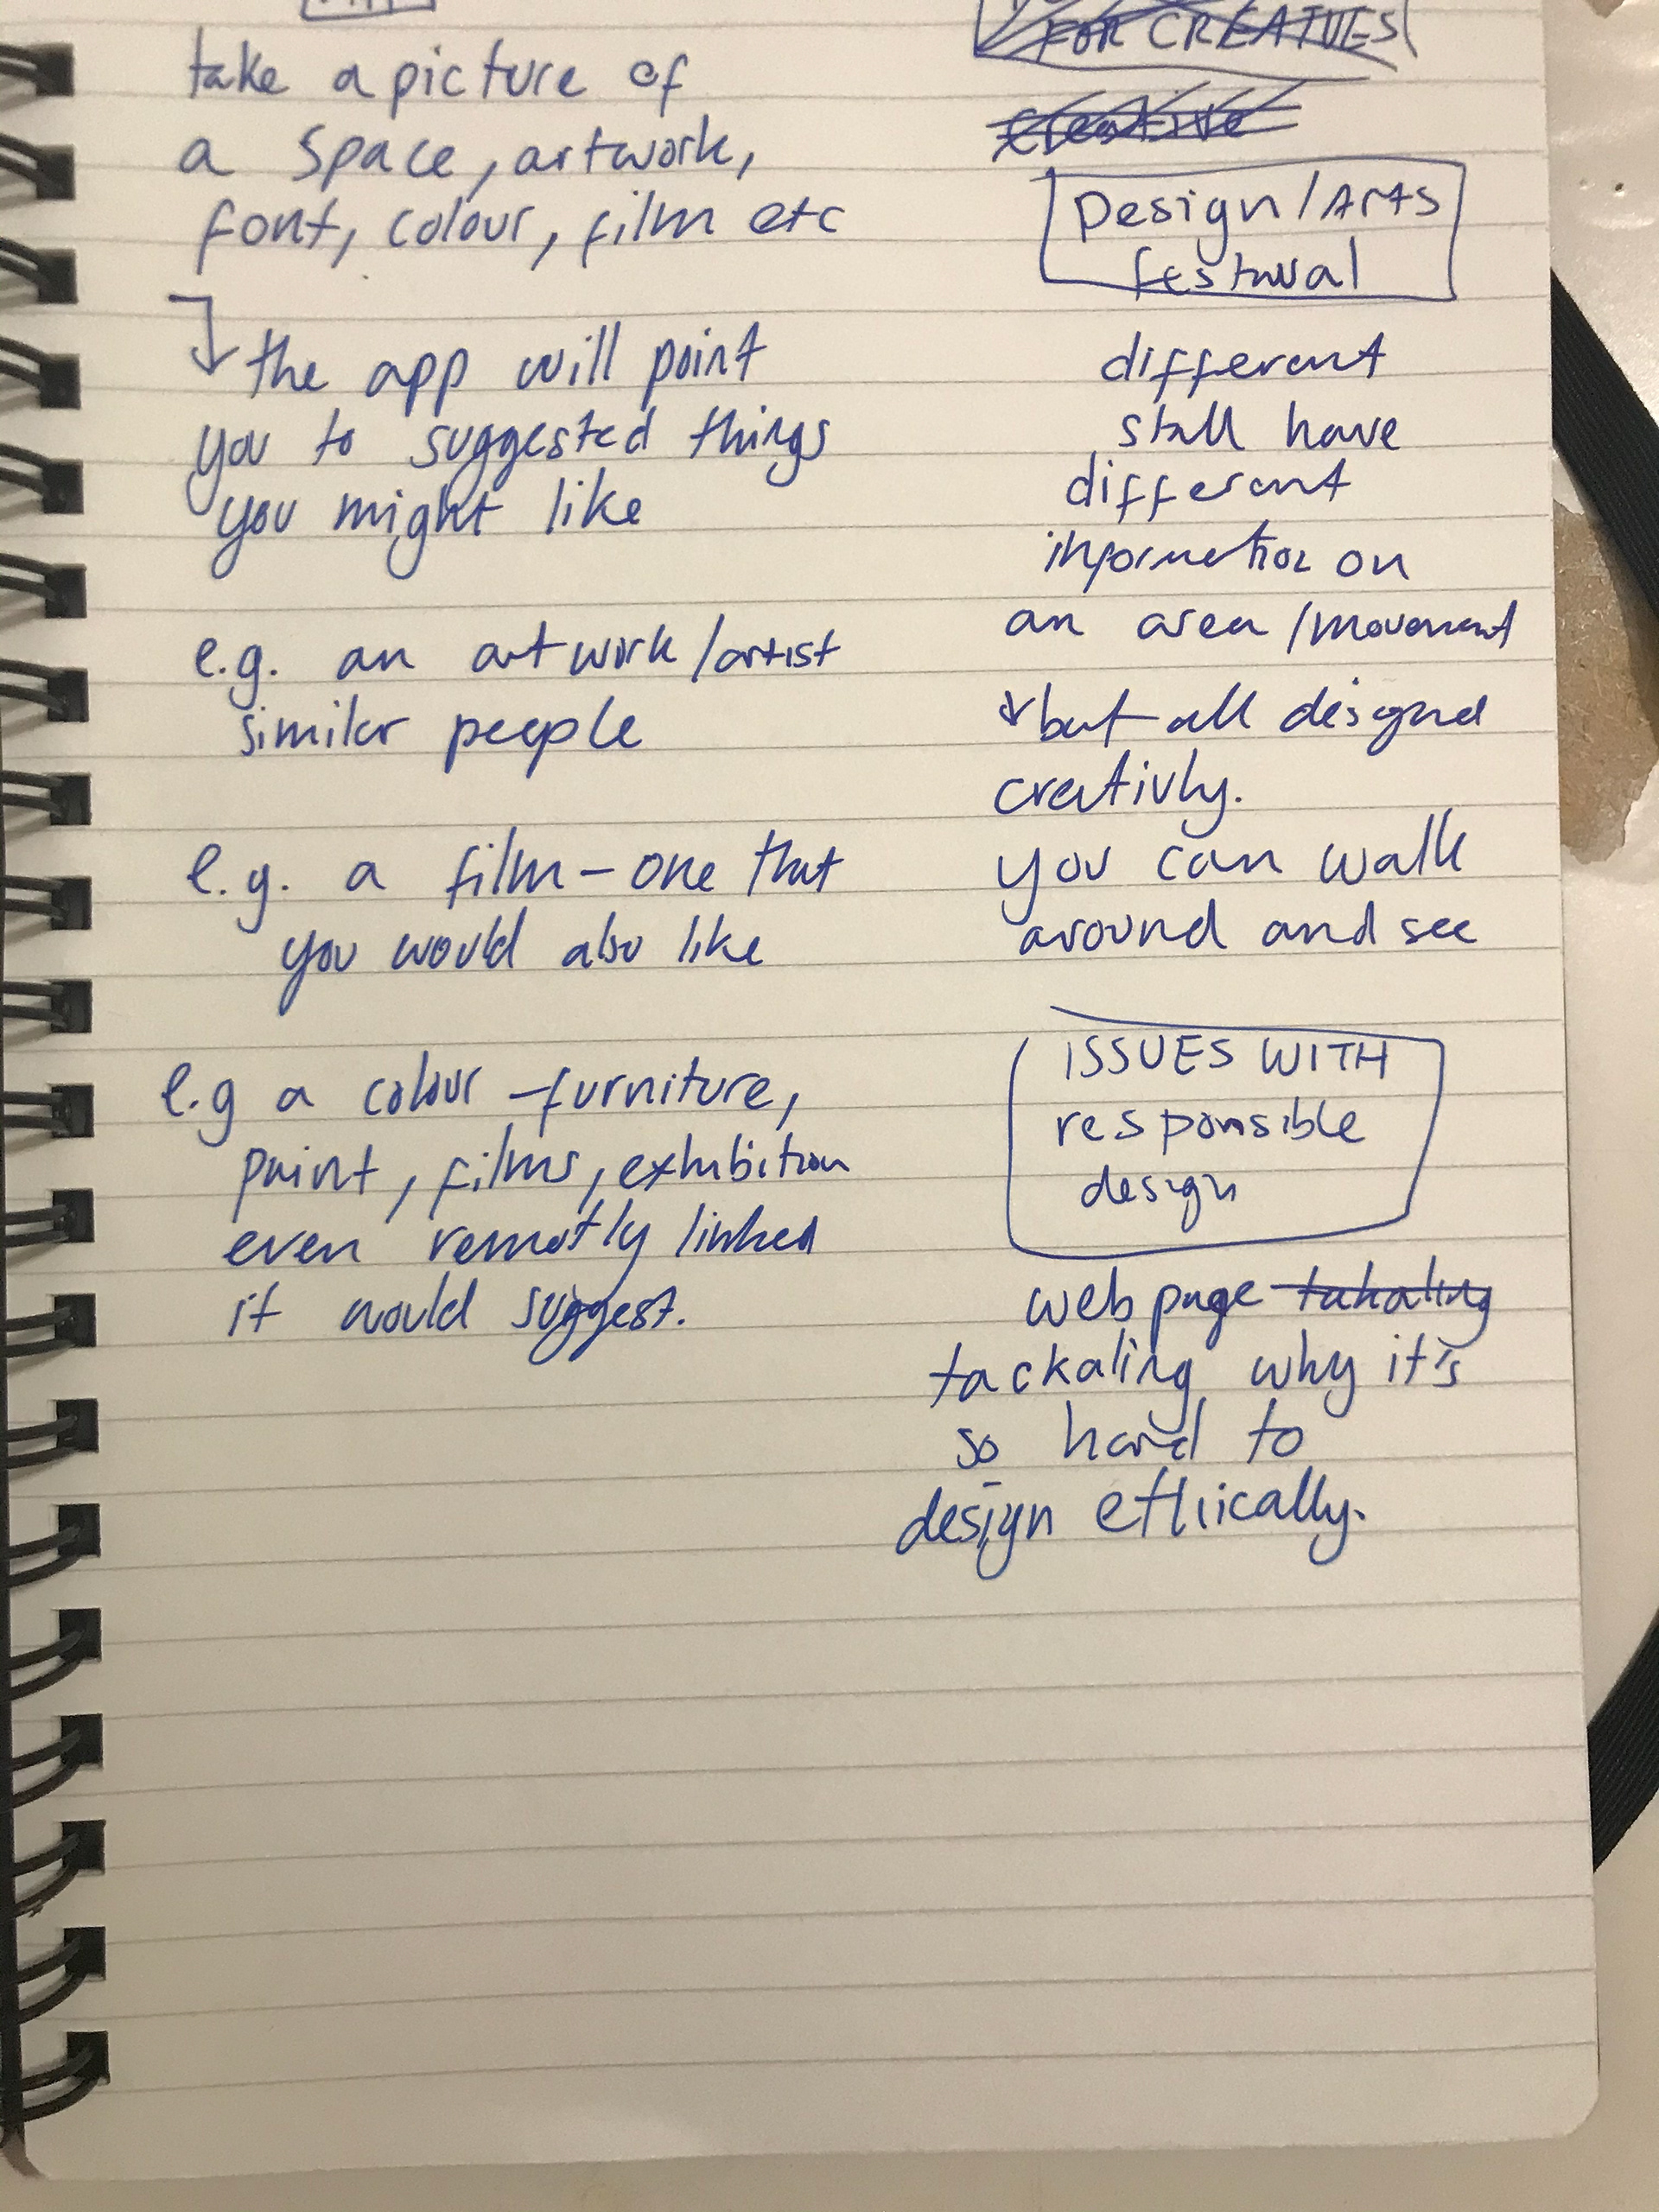 take a picture of
a space, artwork,
font, colour, film etc
the app will point
you to suggested things
you might like
e.g. an artwork/artist
similar people
e.g. a film - one that
you would also like
e.g a colour - furniture,
paint, films, exhibition
even remotly linked
it would suggest.
FOR CREATIVES
creative
Design/Arts
festival
different
stall have
different
information on
an area/movement
but all designed
creativly.
you can walk
around and see
ISSUES WITH
responsible
design
webpage takaling
tackaling why it's
so hard to
design ethically.